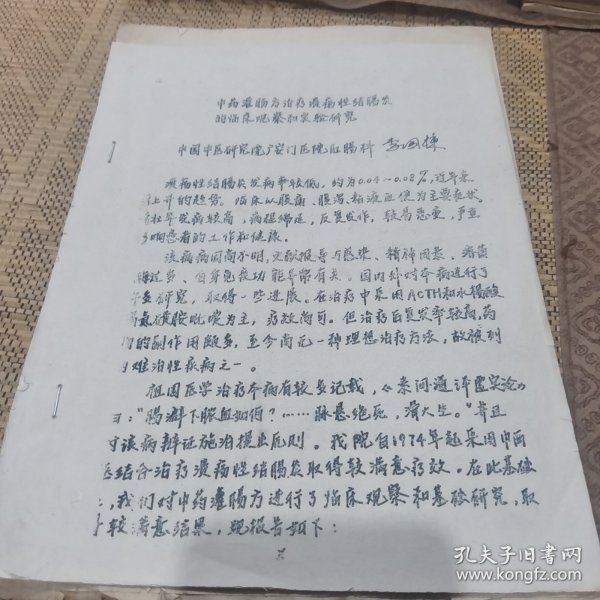 中药灌肠方治疗溃疡性结肠炎
的临床观察和实验研究
中国中医研究院广安门医院肛肠科 李国栋
溃疡性结肠炎发病率较低，约为0.04～0.08%，近年来
上升的趋势。临床以腹痛、腹泻、粘液血便为主要症状。
壮年发病较高，病程绵延，反复发作，较易恶变，严重
响患者的工作和健康。
该病病因尚不明，文献报导与感染、精神因素、
过多、自身免疫功能异常有关。国内外对本病进行了
研究，取得一些进展。在治疗中采用ACTH和水杨酸
氮磺胺吡啶为主，疗效尚可。但治疗后复发率较高，药
的副作用颇多，至今尚无一种理想治疗方法，故被列
难治性疾病之一。
祖国医学治疗本病有较多记载，《素问通评虚实论》
：“肠澼下脓血如何？……脉悬绝死，滑大生。”并且
该病辨证施治提出原则。我院自1974年起采用中西
结合治疗溃疡性结肠炎取得较满意疗效。在此基础
，我们对中药灌肠方进行了临床观察和基础研究，取
较满意结果，现报告如下：
孔夫子旧书网
www.kongfz.com